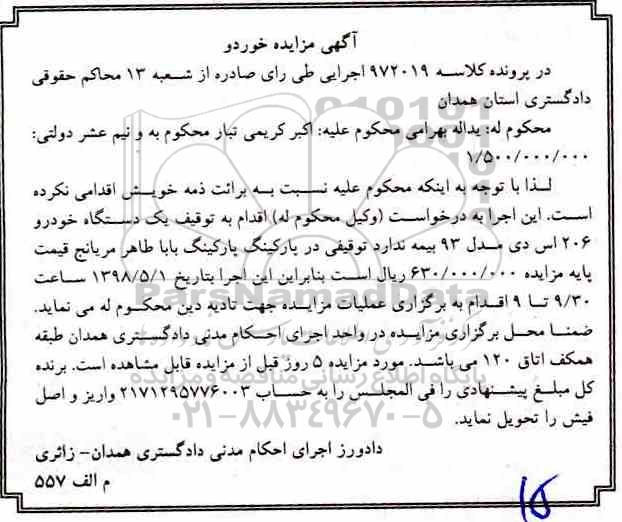 آگهی مزایده خوردو
در پرونده کلاسه ۹۷۲۰۱۹ اجرایی طی رای صادره از شعبه ۱۳ محاکم حقوقی
دادگستری استان همدان
محکوم له: یداله بهرامی محکوم علیه: اکبر کریمی تبار محکوم به و نیم عشر دولتی:
۱/۵۰۰/۰۰۰/۰۰۰
لذا با توجه به اینکه محکوم علیه نسبت به برائت ذمه خویش اقدامی نکرده
است. این اجرا به درخواست (وکیل محکوم له) اقدام به توقیف یک دستگاه خودرو
۲۰۶ اس دی مدل ۹۳ بیمه ندارد توقیفی در پارکینگ پارکینگ بابا طاهر مریانج قیمت
پایه مزایده ۶۳۰/۰۰۰/۰۰۰ ریال است بنابراین این اجرا بتاریخ ۱۳۹۸/۵/۱ ساعت
۹/۳۰ تا ۹ اقدام به برگزاری عملیات مزایده جهت تادیه دین محکوم له می نماید.
ضمنا محل برگزاری مزایده در واحد اجرای احکام مدنی دادگستری همدان طبقه
همکف اتاق ۱۲۰ می باشد. مورد مزایده ۵ روز قبل از مزایده قابل مشاهده است. برنده
کل مبلغ پیشنهادی را فی المجلس را به حساب ۲۱۷۱۲۹۵۷۷۶۰۰۳ واریز و اصل
فیش را تحویل نماید.
دادورز اجرای احکام مدنی دادگستری همدان- زائری
م الف ۵۵۷
ParsNamadData
پایگاه اطلاع رسانی مناقصه و مزایده
۰۲۱-۸۸۳۴۹۶۷۰-۵
۱۵